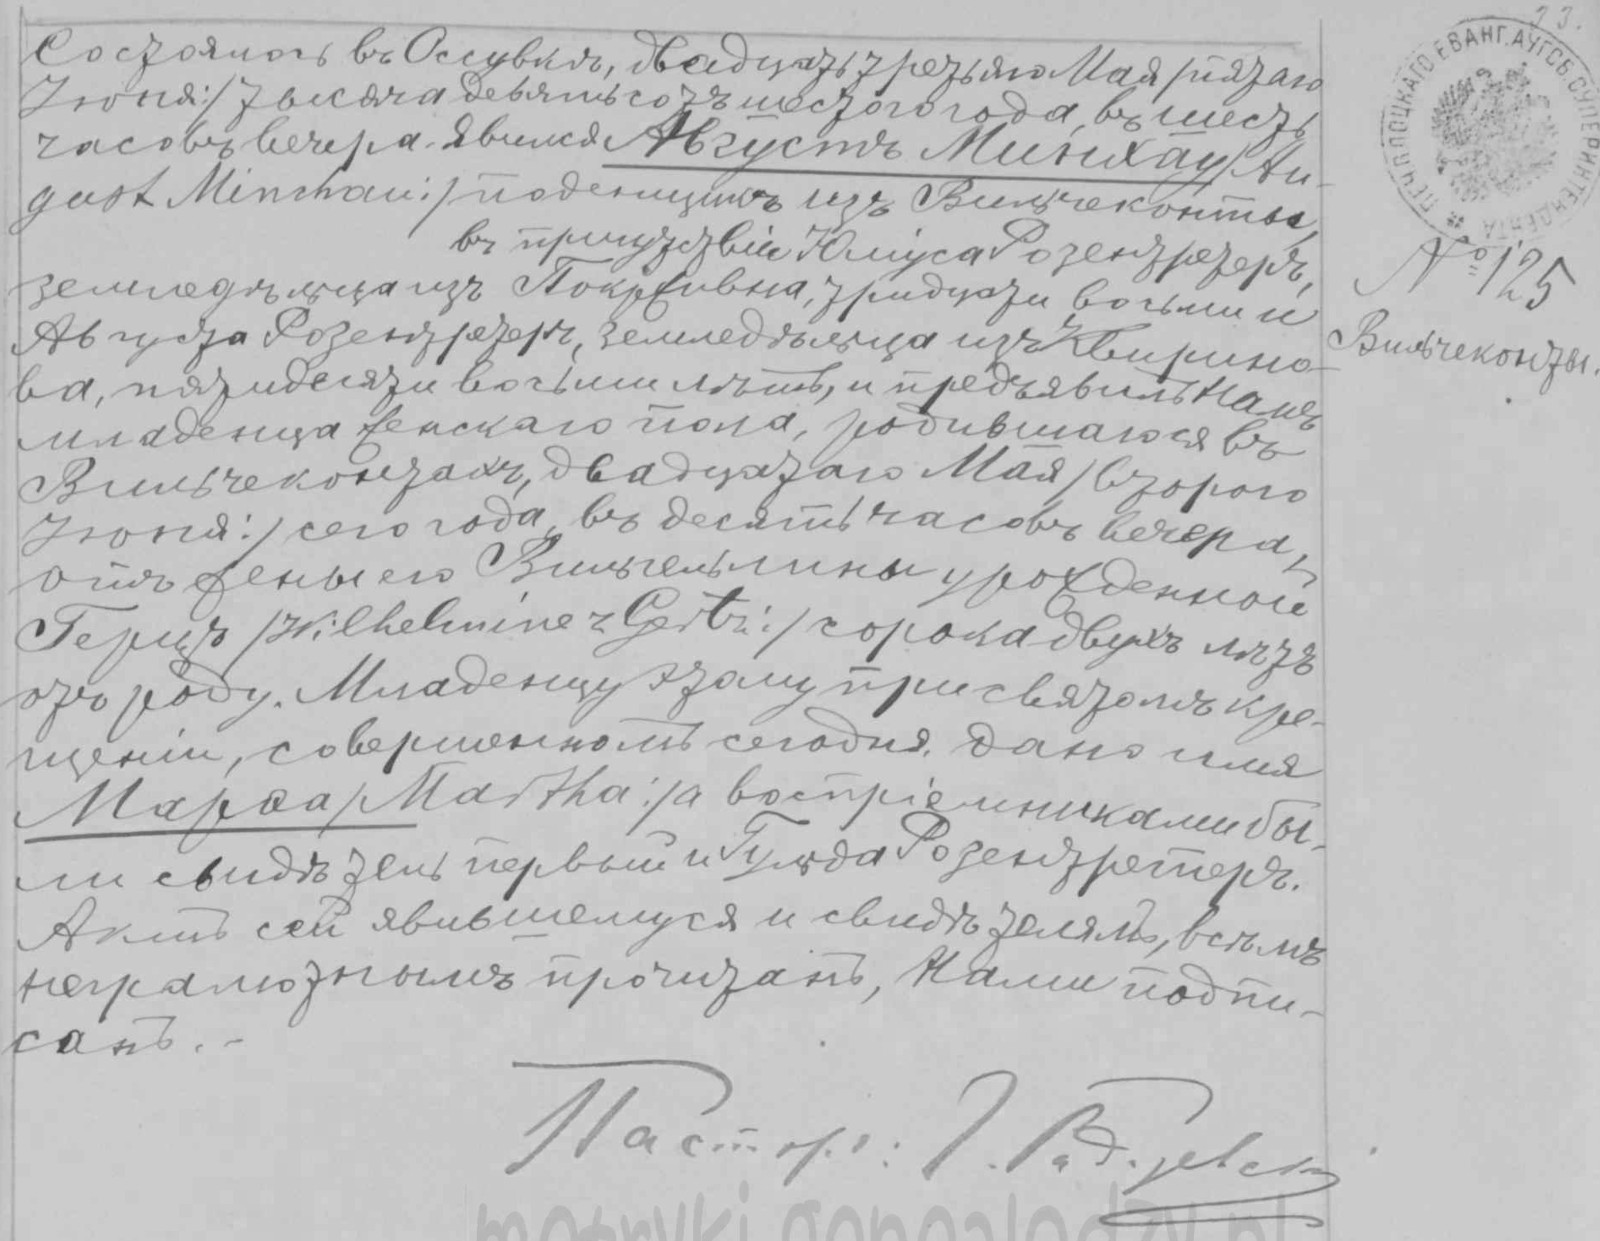 33.
ПЕЧ. ПЛОЦКАГО ЕВАНГ. АУГСБ. СУПЕРИНТЕНДЕНТА
№ 125
Вильчеконты.
Состоялось въ Оссувкѣ, двадцать третьяго Мая /пятаго
Іюня:/ тысяча девятьсотъ шестого года, въ шесть
часовъ вечера. Явился Августъ Минхау /Au-
gust Minchau:/ поденщикъ изъ Вильчеконты,
въ присутствіи Юлiуса Розентретеръ,
земледѣльца изъ Покрживна, тридцати восьми и
Августа Розентретеръ, земледѣльца изъ Квирино-
ва, пятидесяти восьми лѣтъ, и предъявилъ намъ
младенца женскаго пола, родившагося въ
Вильчеконтахъ, двадцатаго Мая /второго
Іюня:/ сего года, въ десять часовъ вечера,
отъ жены его Вильгельмины урожденной
Герцъ /Wilhelmine z Gertz:/ сорока двухъ лѣтъ
отъ роду. Младенцу этому при святомъ кре-
щеніи, совершенномъ сегодня, дано имя
Марѳа /Martha:/ а воспріемниками бы-
ли свидѣтель первый и Гульда Розентретеръ.
Актъ сей явившемуся и свидѣтелямъ, всѣмъ
неграмотнымъ прочитанъ, Нами подпи-
санъ. -
Пасторъ:
metryki.genealodzy.pl